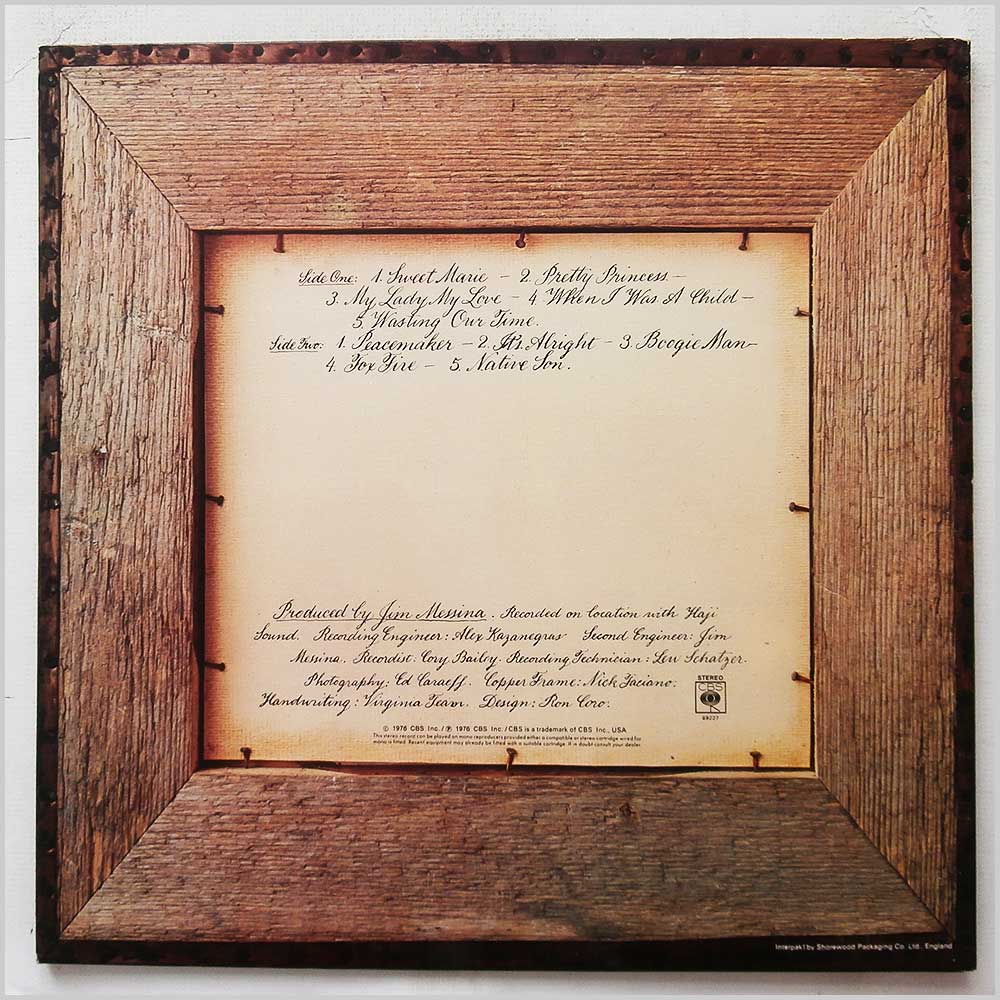 Side One: 1. Sweet Marie – 2. Pretty Princess –
3. My Lady, My Love – 4 When I Was A Child –
5. Wasting Our Time.
Side Two: 1. Peacemaker – 2. It's Alright – 3. Boogie Man –
4. Fox Fire – 5. Native Son.
Produced by Jim Messina. Recorded on location with Haji
Sound. Recording Engineer: Alex Kazanegras Second Engineer: Jim
Messina. Recordist: Cory Bailey. Recording Technician: Lew Schatzer.
Photography: Ed Caraeff. Copper Frame: Nick Taciano.
Handwriting: Virginia Team. Design: Ron Coro.
STEREO
CBS
69227
© 1976 CBS Inc./℗ 1976 CBS Inc./CBS is a trademark of CBS Inc., USA
This stereo record can be played on mono reproducers provided either a compatible or stereo cartridge wired for
mono is fitted. Recent equipment may already be fitted with a suitable cartridge. If in doubt consult your dealer.
Interpak1 by Shorewood Packaging Co. Ltd., England